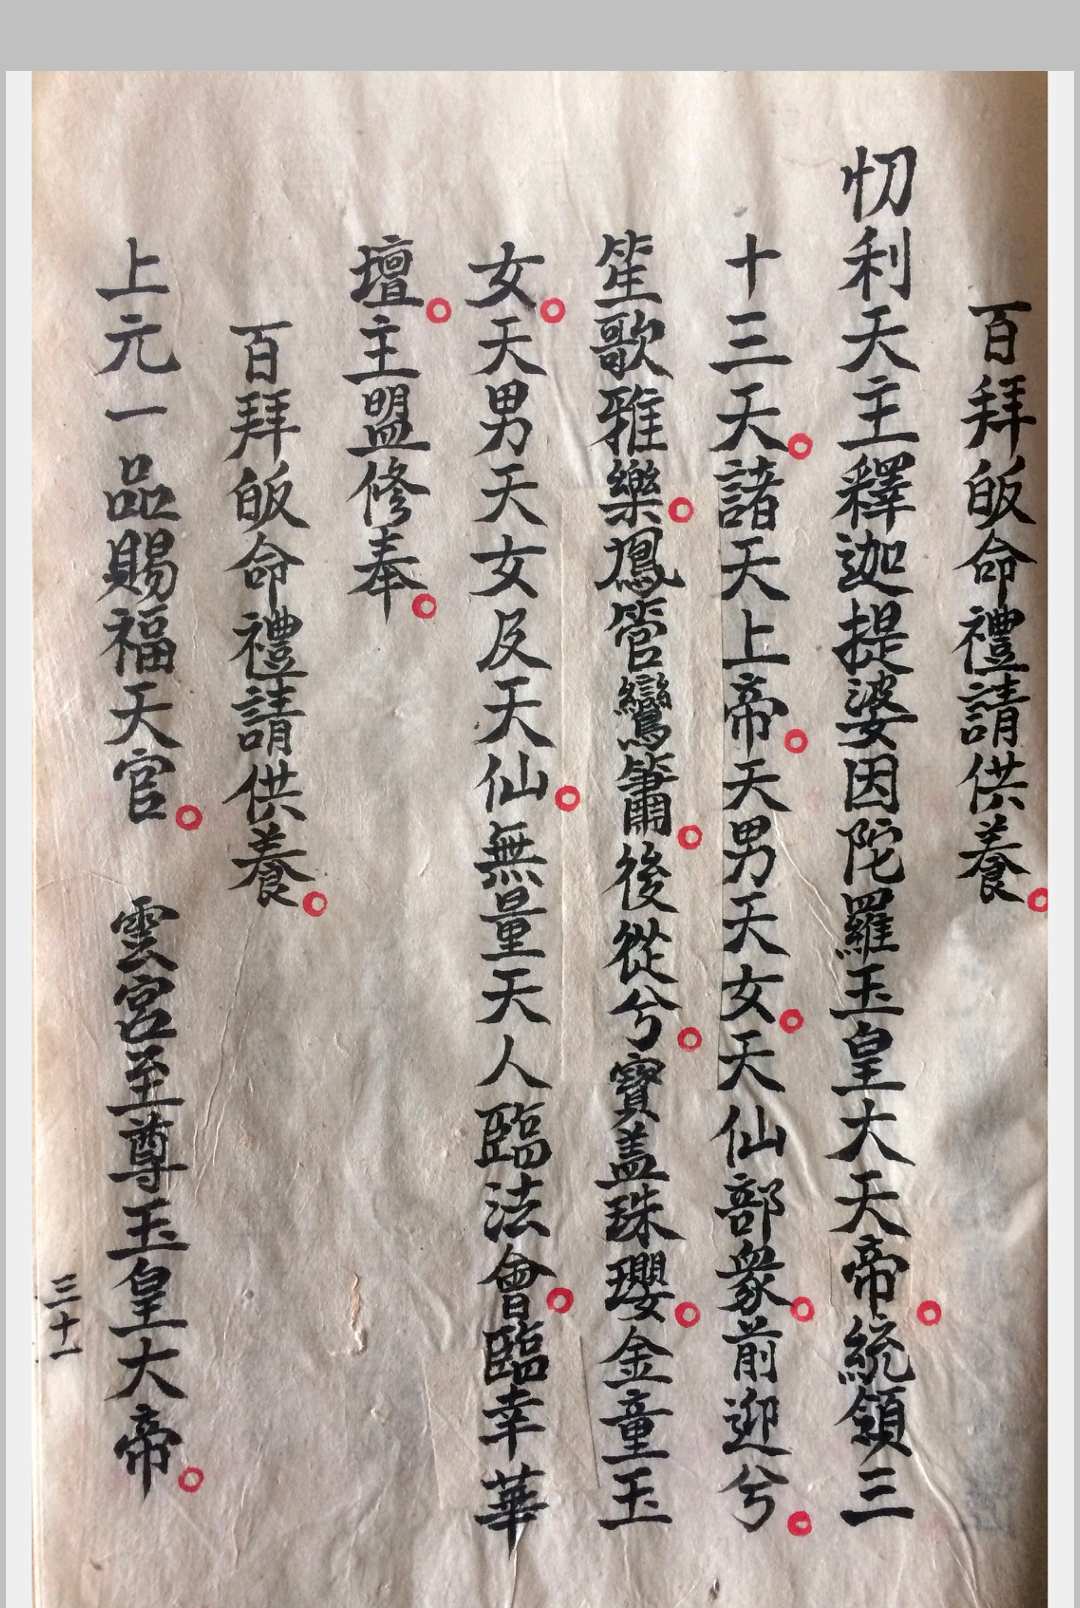 百拜皈命禮請供養。
忉利天主釋迦提婆因陀羅玉皇大天帝。統領三
十三天。諸天上帝。天男天女。天仙部衆。前迎兮。
笙歌雅樂。鳳管鸞簫。後從兮。寶盖珠瓔。金童玉
女。天男天女及天仙。無量天人臨法會。臨幸華
壇。主盟修奉。
百拜皈命禮請供養。
上元一品賜福天官。 雲宮至尊玉皇大帝。
三十一